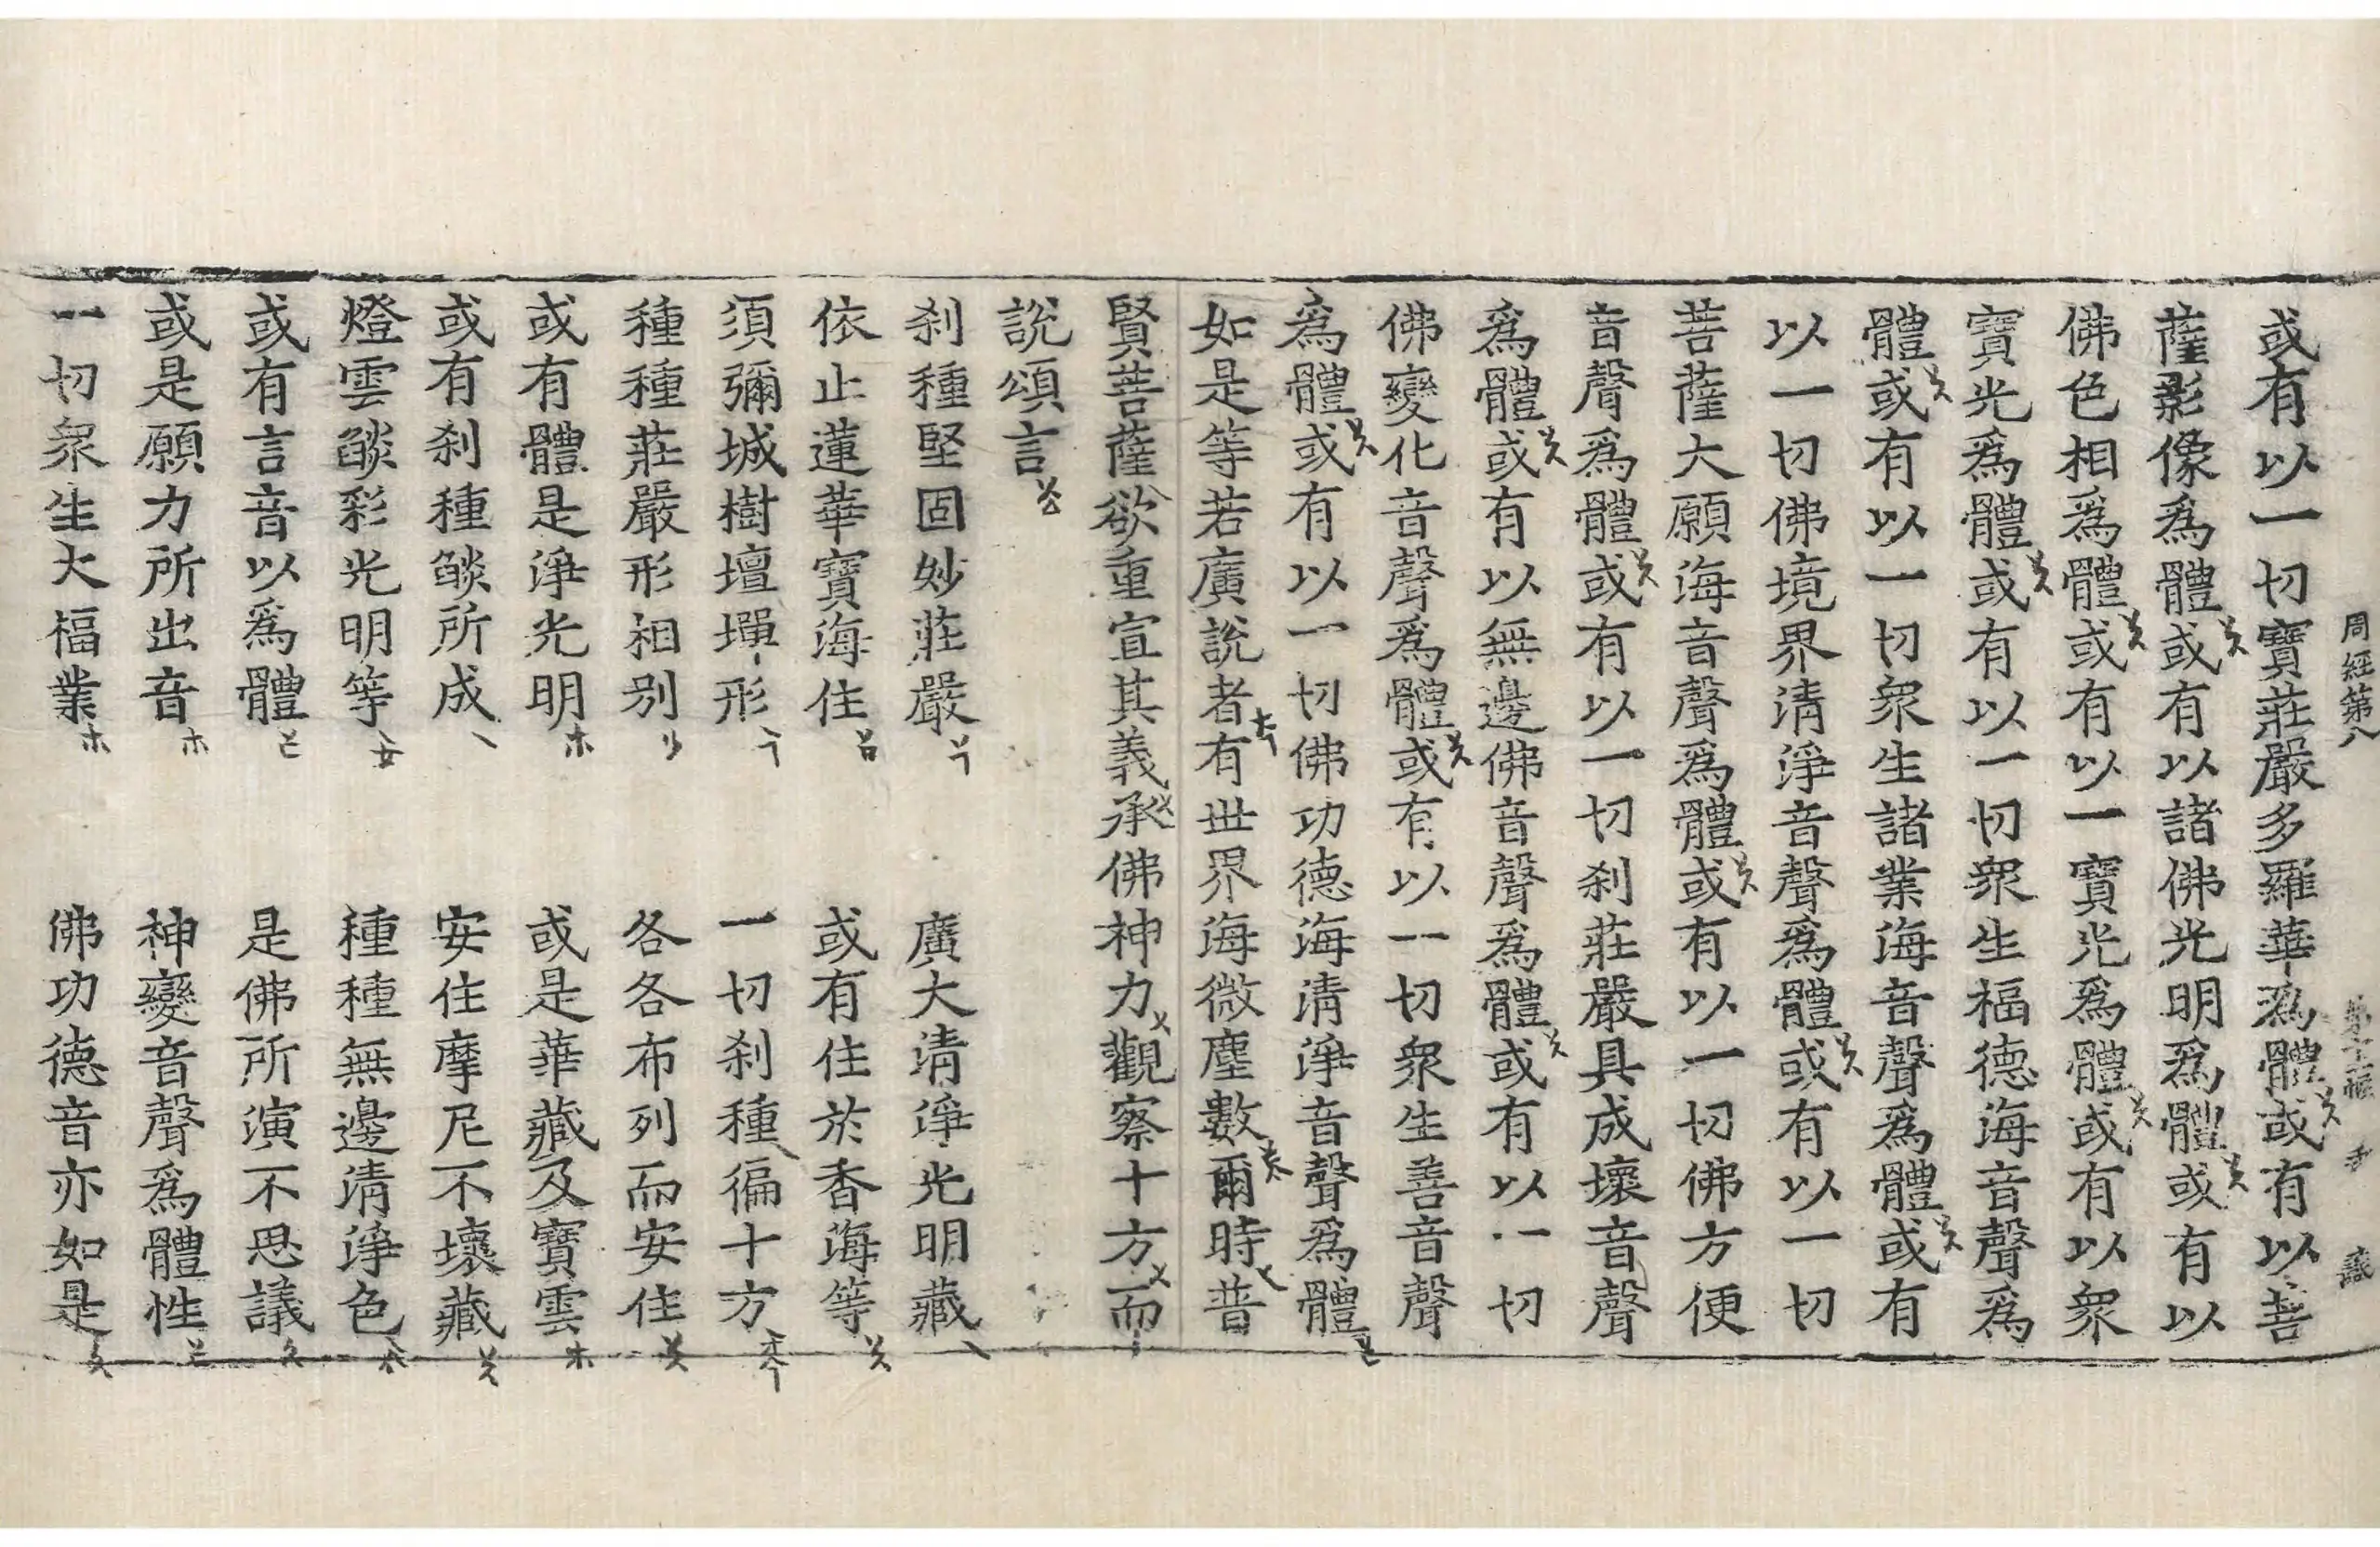 周經第八
或有以一切寶莊嚴多羅華爲體或有以菩
薩影像爲體或有以諸佛光明爲體或有以
佛色相爲體或有以一寶光爲體或有以衆
寶光爲體或有以一切衆生福德海音聲爲
體或有以一切衆生諸業海音聲爲體或有
以一切佛境界清淨音聲爲體或有以一切
菩薩大願海音聲爲體或有以一切佛方便
音聲爲體或有以一切刹莊嚴具成壞音聲
爲體或有以無邊佛音聲爲體或有以一切
佛變化音聲爲體或有以一切衆生善音聲
爲體或有以一切佛功德海清淨音聲爲體
如是等若廣說者有世界海微塵數爾時普
賢菩薩欲重宣其義承佛神力觀察十方而
說頌言
刹種堅固妙莊嚴 廣大清淨光明藏
依止蓮華寶海住 或有住於香海等
須彌城樹壇墠形 一切刹種徧十方
種種莊嚴形相別 各各布列而安住
或有體是淨光明 或是華藏及寶雲
或有刹種燄所成 安住摩尼不壞藏
燈雲燄彩光明等 種種無邊清淨色
或有言音以爲體 是佛所演不思議
或是願力所出音 神變音聲爲體性
一切衆生大福業 佛功德音亦如是